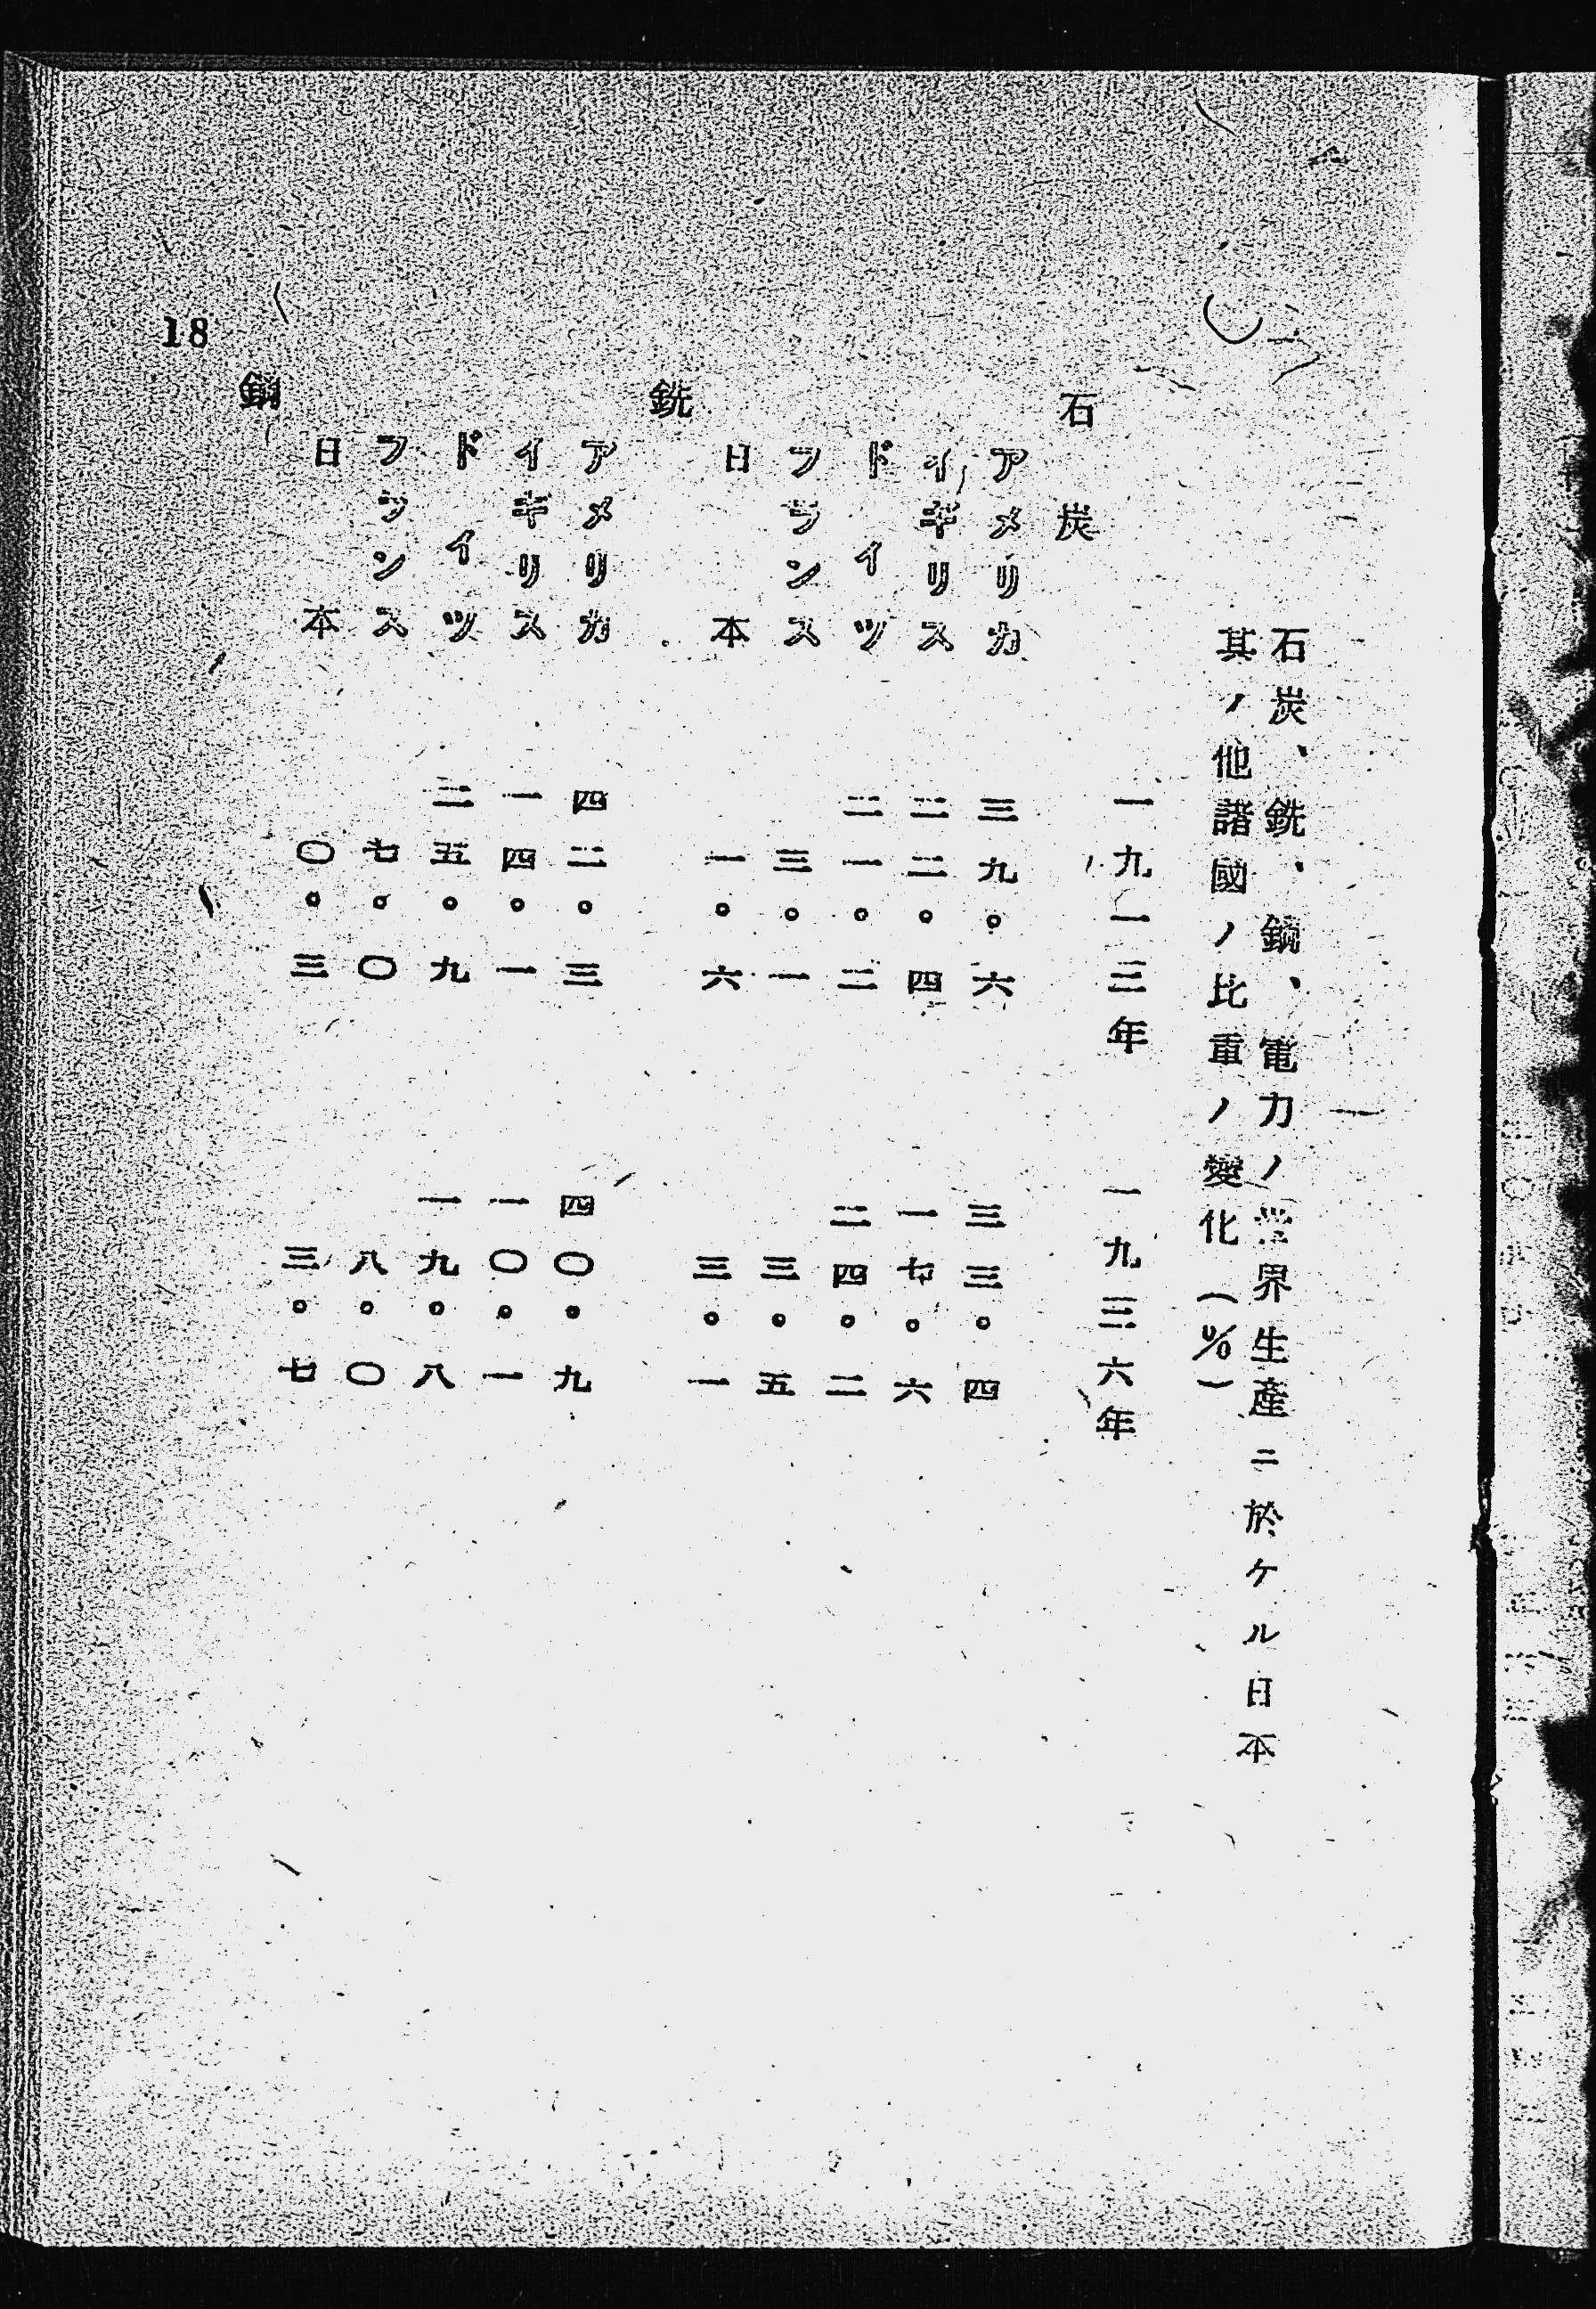 石炭、銑、鋼、電力ノ世界生產ニ於ケル日本
其ノ他諸國ノ比重ノ變化(%)
一九一三年 一九三六年
石炭
アメリカ 三九。六 三三。四
イギリス 二二。四 一七。六
ドイツ 二一。二 二四。二
フランス 三。一 三。五
日本 一。六 三。一
銑
アメリカ 四二。三 四〇。九
イギリス 一四。一 一〇。一
ドイツ 二五。九 一九。八
フランス 七。〇 八。〇
日本 〇。三 三。七
鋼
18